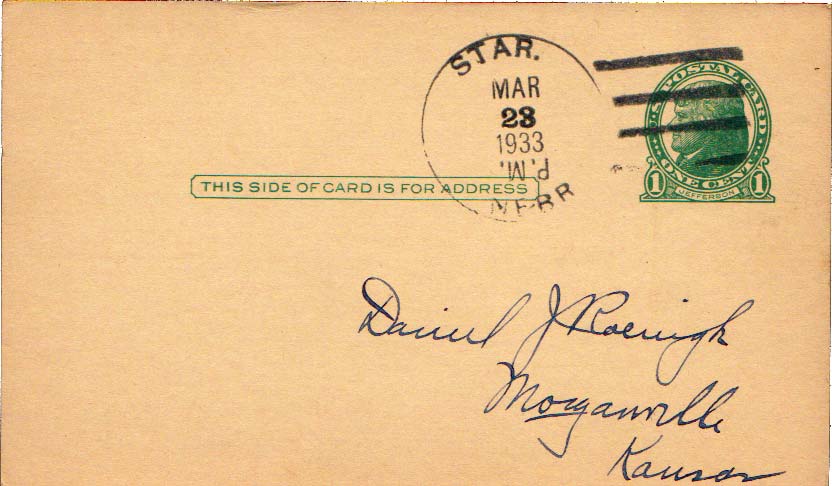 STAR.
MAR
23
1933
P.M.
NEBR
U.S. POSTAL CARD
ONE CENT
1 JEFFERSON 1
THIS SIDE OF CARD IS FOR ADDRESS
Daniel J Roenigk
Morganville
Kansas